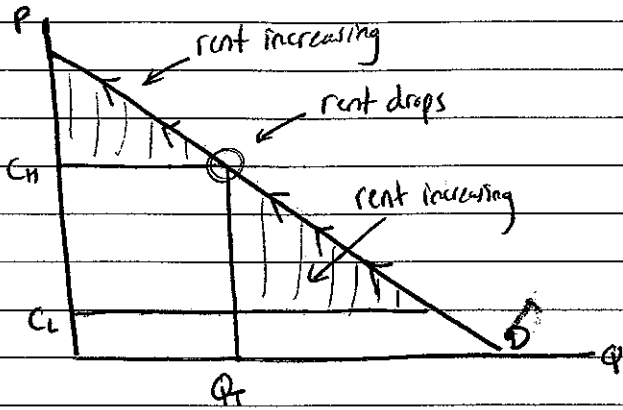 P
rent increasing
rent drops
CH
rent increasing
CL
D
Q
QT